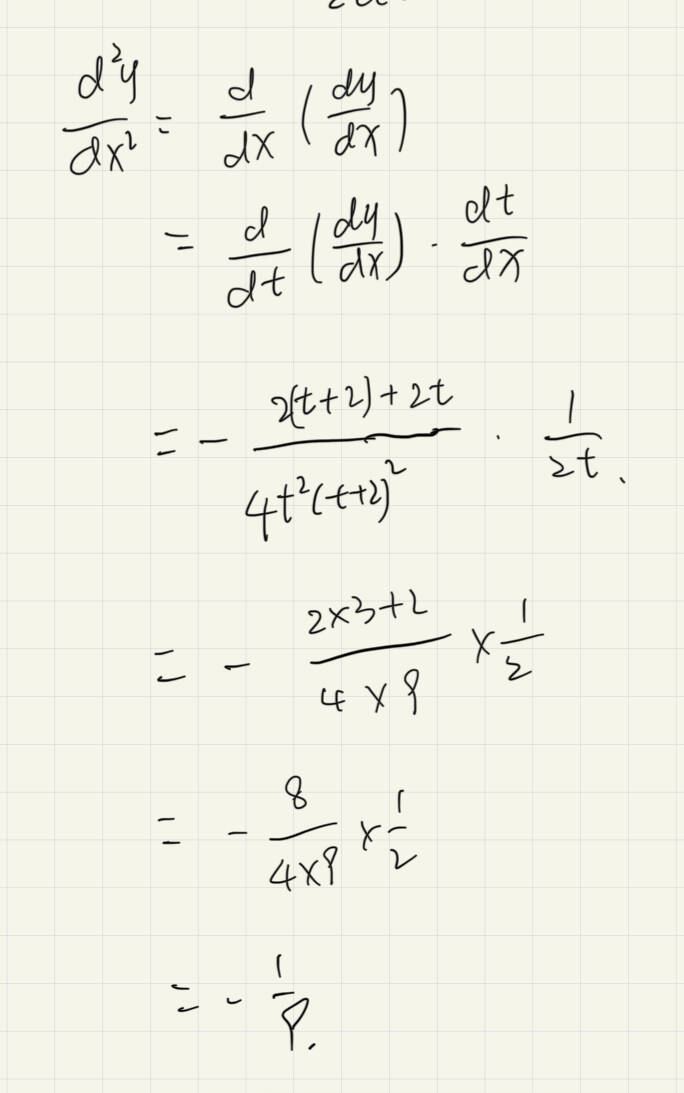 d²y/dx² = d/dx (dy/dx)
= d/dt (dy/dx) · dt/dx
= - (2(t+2)+2t)/(4t²(t+2)²) · 1/2t.
= - (2×3+2)/(4×9) × 1/2
= - 8/(4×9) × 1/2
= - 1/9.